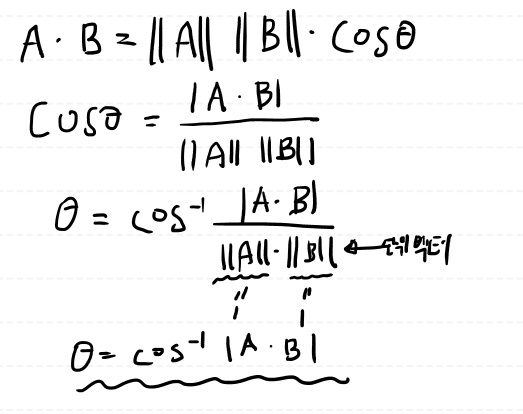 A · B = ||A|| ||B|| · cosθ
cosθ = |A · B| / ||A|| ||B||
θ = cos⁻¹ |A · B| / ||A|| · ||B|| ← 단위벡터
" "
1 1
θ = cos⁻¹ |A · B|